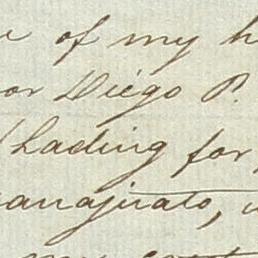 of my h
or Diégo P.
lading for
anajuato,